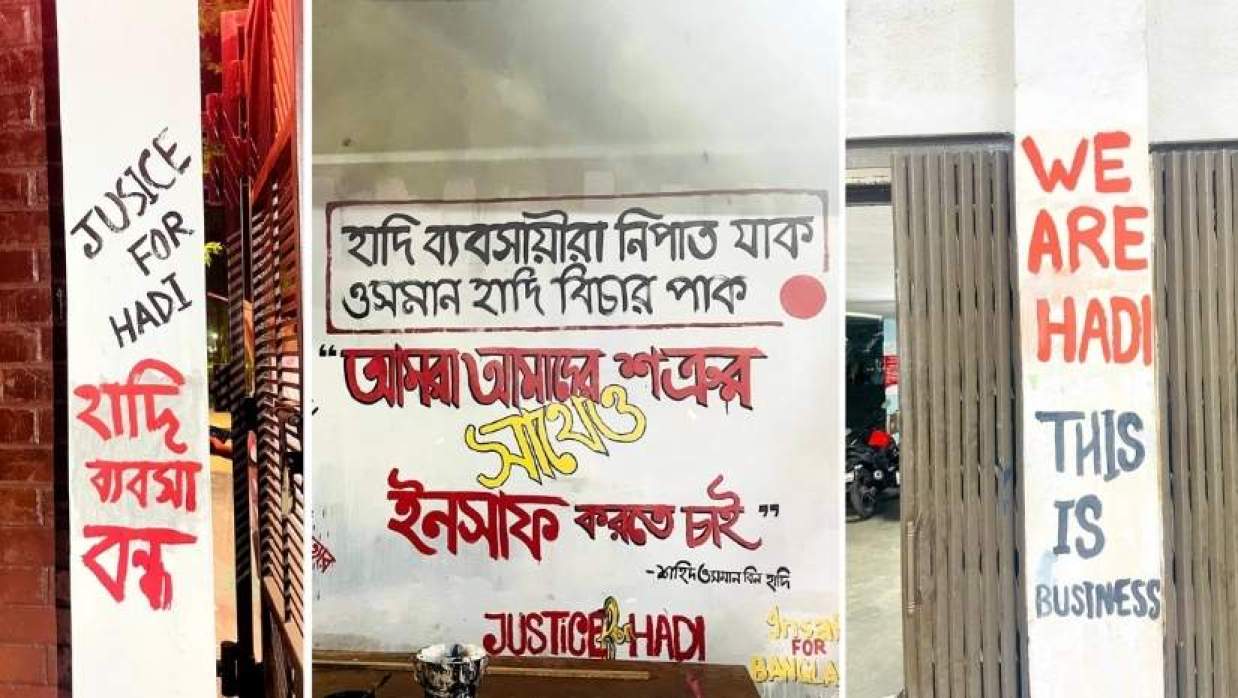 JUSICE
FOR
HADI
হাদি
ব্যবসা
বন্ধ
হাদি ব্যবসায়ীরা নিপাত যাক
ওসমান হাদি বিচার পাক
“আমরা আমাদের শত্রুর
সাথেও
ইনসাফ করতে চাই”
-শহিদ ওসমান বিন হাদি
JUSTICE for HADI
FOR
BANGLA
WE
ARE
HADI
THIS
IS
BUSINESS